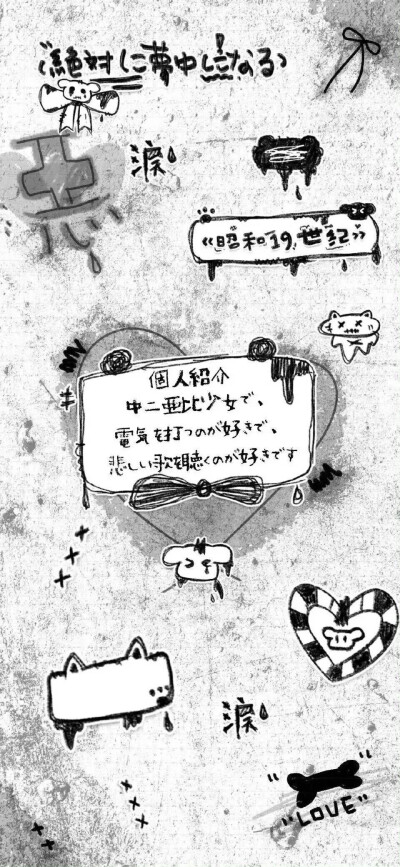 絶対に夢中になる
悪
涙
《昭和19,世紀》
個人紹介
中二亜比少女で、
電気を打つのが好きで、
悲しい歌を聴くのが好きです
涙
"LOVE"